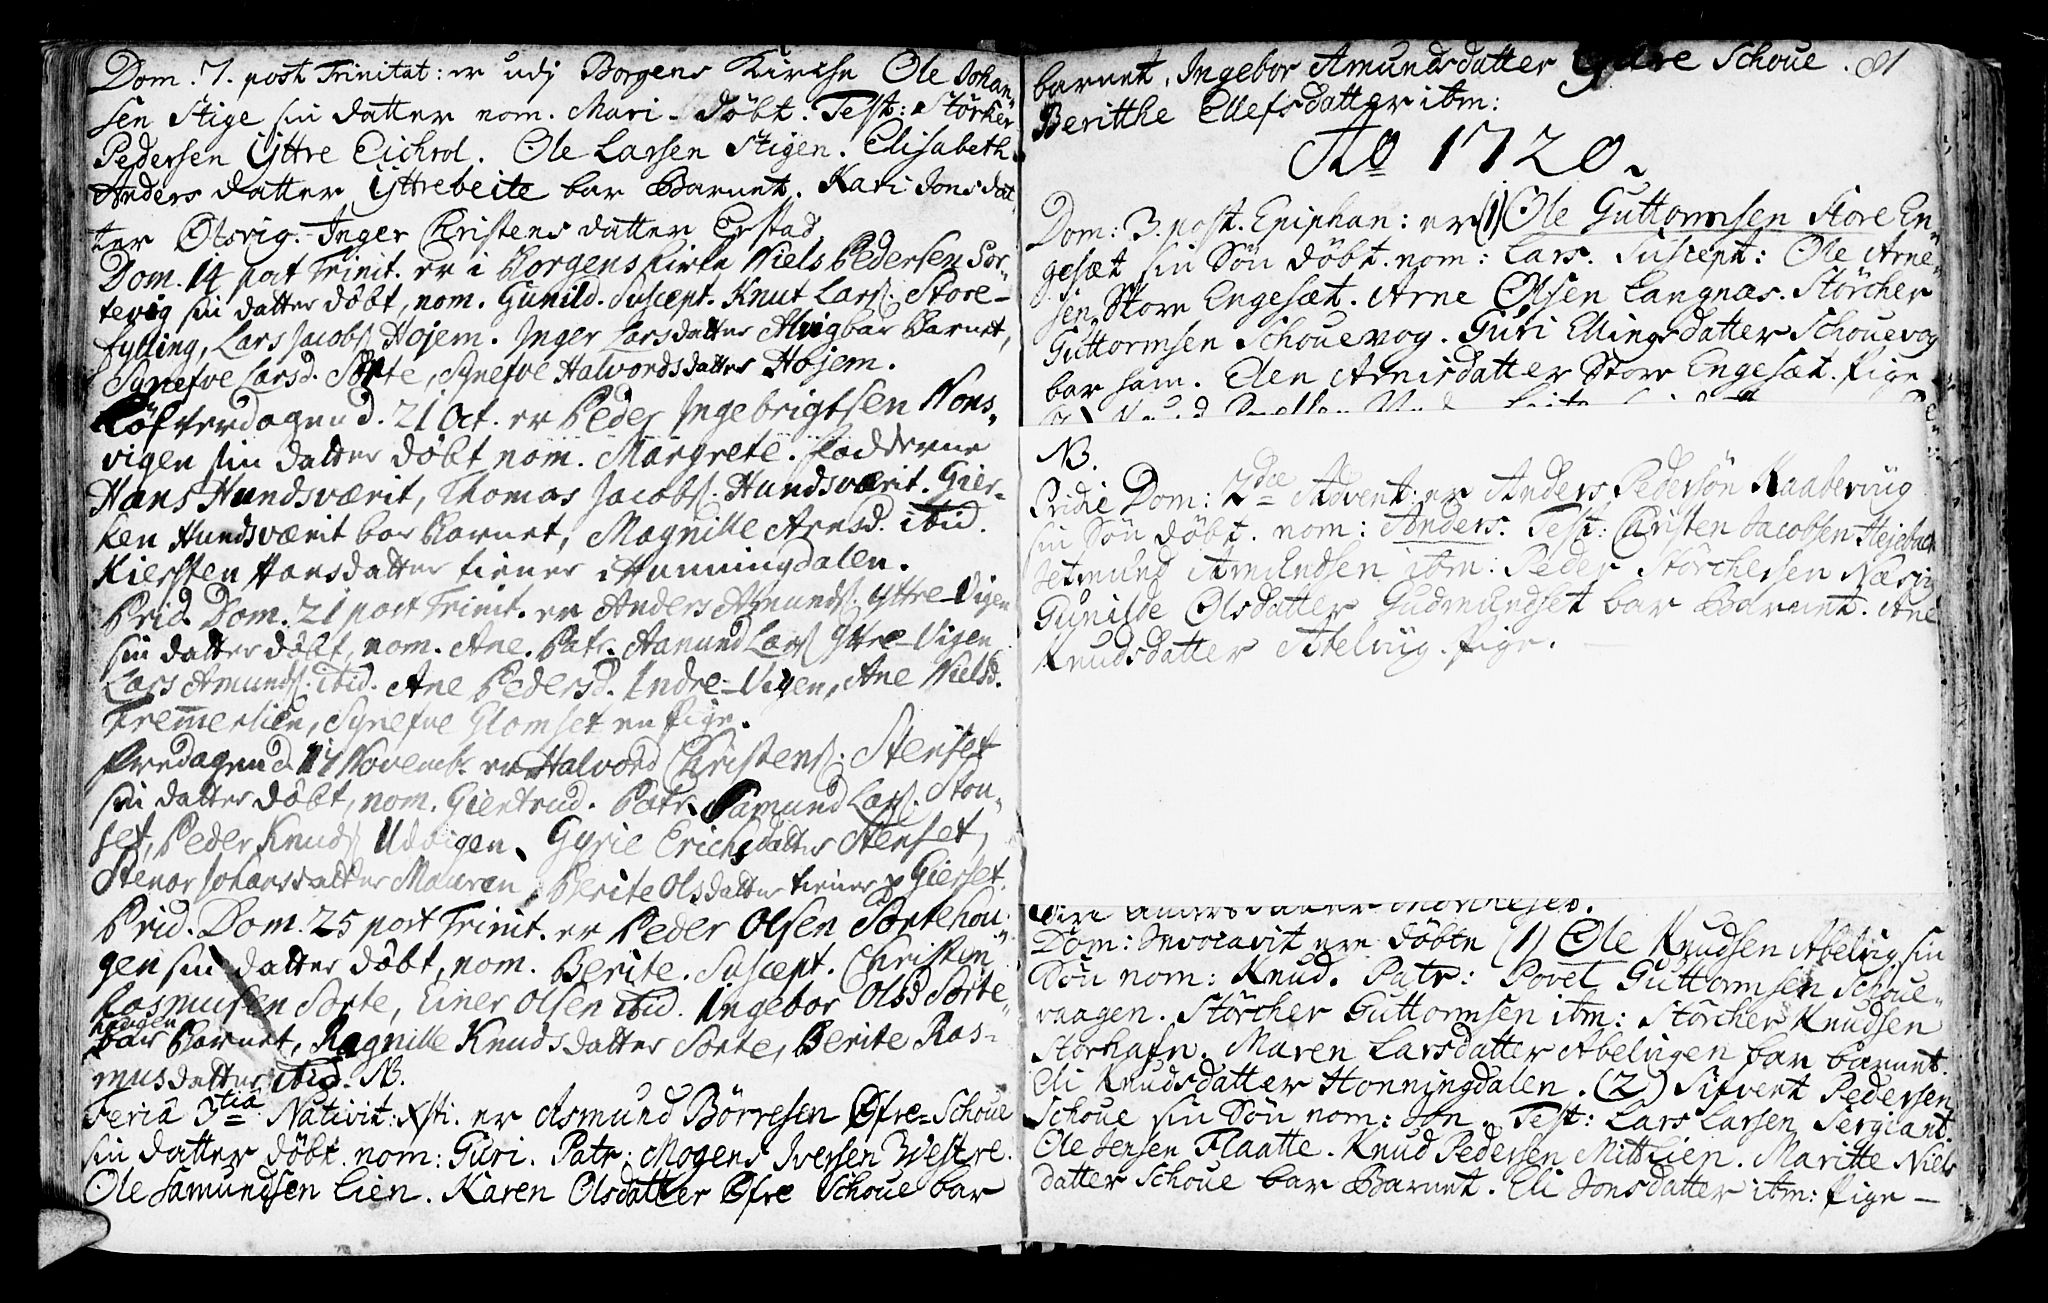 Dom. 7. post Trinitat: er udj Borgens Kirche Ole Johan-
sen Stige sin datter nom. Mari - döbt. Test: Störker
Pedersen Yttre Eichrol. Ole Larsen Stigen. Elisabeth
Anders datter Yttrebeite bar Barnet. Kari Jonsdat-
ter Olsvig. Inger Christens datter Erstad
Dom. 14 post Trinit. er i Borgens Kirke Niels Pedersen Sor-
tevig sin datter döbt, nom. Gunild. Suscept. Knut Lars. Store-
fylling, Lars Jacobs Hojem. Inger Larsdatter Alvig bar Barnet,
Synefve Larsd. Sorte, Synefve Halvordsdatter Hojem.
Löfverdagen d. 21 Oct. er Peder Ingebrigtsen Nons-
vigen sin datter döbt nom. Margrete. Fadderne
Hans Hundsværit, Thomas Jacobs. Hundsværit. Gier-
ken Hundsværit bar Barnet, Magnille Arnsd. ibid.
Kiersten Hansdatter tiener i Hunningdalen.
Prid. Dom. 21 post Trinit. er Anders Amunds. Yttre-Vigen
sin datter döbt, nom. Ane. Patr. Aamund Lars Yttre-Vigen
Lars Amunds. ibid. Ane Pedersd. Indre-Vigen, Ane Nielsd.
Fremmerlien, Synefve Glomset en Pige.
Fredagen d. 17 Novemb. er Halvord Christens. Stenset
sin datter döbt, nom. Giertrud. Patr. Aamund Lars. Ston-
set, Peder Knuds Udvigen, Gyrie Erichsdatter Stenset,
Stenor Johansdatter Mauren, Berite Olsdatter tiener p Gierset.
Prid. Dom. 25 post Trinit. er Peder Olsen Sortehou-
gen sin datter döbt, nom. Berite. Suscept. Christen
Rasmussen Sorte, Einer Olsen ibid. Ingebor Olsd Sorte-
hougen
bar Barnet, Ragnille Knudsdatter Sorte, Berite Ras-
musdatter ibid. NB.
Feriâ 3tia Nativit: Xsti. er Asmund Börresen Öfre-Schoue
sin datter döbt. nom: Guri. Patr: Mogens Iversen Westre.
Ole Samundsen Lien. Karen Olsdatter Öfre Schoue bar
barnet. Ingebor Amundsdatter Schoue. 81
Beritthe Ellefsdatter ibm:
Ao 1720.
Dom: 3. post. Epiphan: er (1) Ole Guttormsen Store En-
gesæt sin Sön döbt. nom: Lars. Suscept: Ole Arne-
sen Store Engesæt. Arne Olsen Langnæs. Störcher
Guttormsen Schouevog. Guri Ellingsdatter Schouevog
bar ham. Elen Arnisdatter Store Engesæt. Pige
NB.
Pridie Dom: 2dæ Advent: er Anders Pedersön Kaabeviig
sin Sön döbt. nom: Anders. Test: Christen Jacobsen
Jetmund Amundsen ibm: Peder Störchersen Næsvig
Gunilde Olsdatter Gudmundset bar Barnet. Ane
Knudsdatter Abelvüg. Pige.
Dom: Invocavit ere döbte (1) Ole Knudsen Abelvig sin
Sön nom: Knud. Patr: Povel Guttormsen Schoue-
vaagen. Störcher Guttormsen ibm: Störcher Knudsen
Störhafn. Maren Larsdatter Abelvigen bar barnet.
Eli Knudsdatter Honningdalen. (2) Sifvert Pedersen
Schoue sin Sön nom: Test: Lars Larsen Sergiant.
Ole Jensen Flaatte. Knud Pedersen Mittlien. Maritte Niels
datter Schoue bar Barnet. Eli Jonsdatter ibm: Pige -